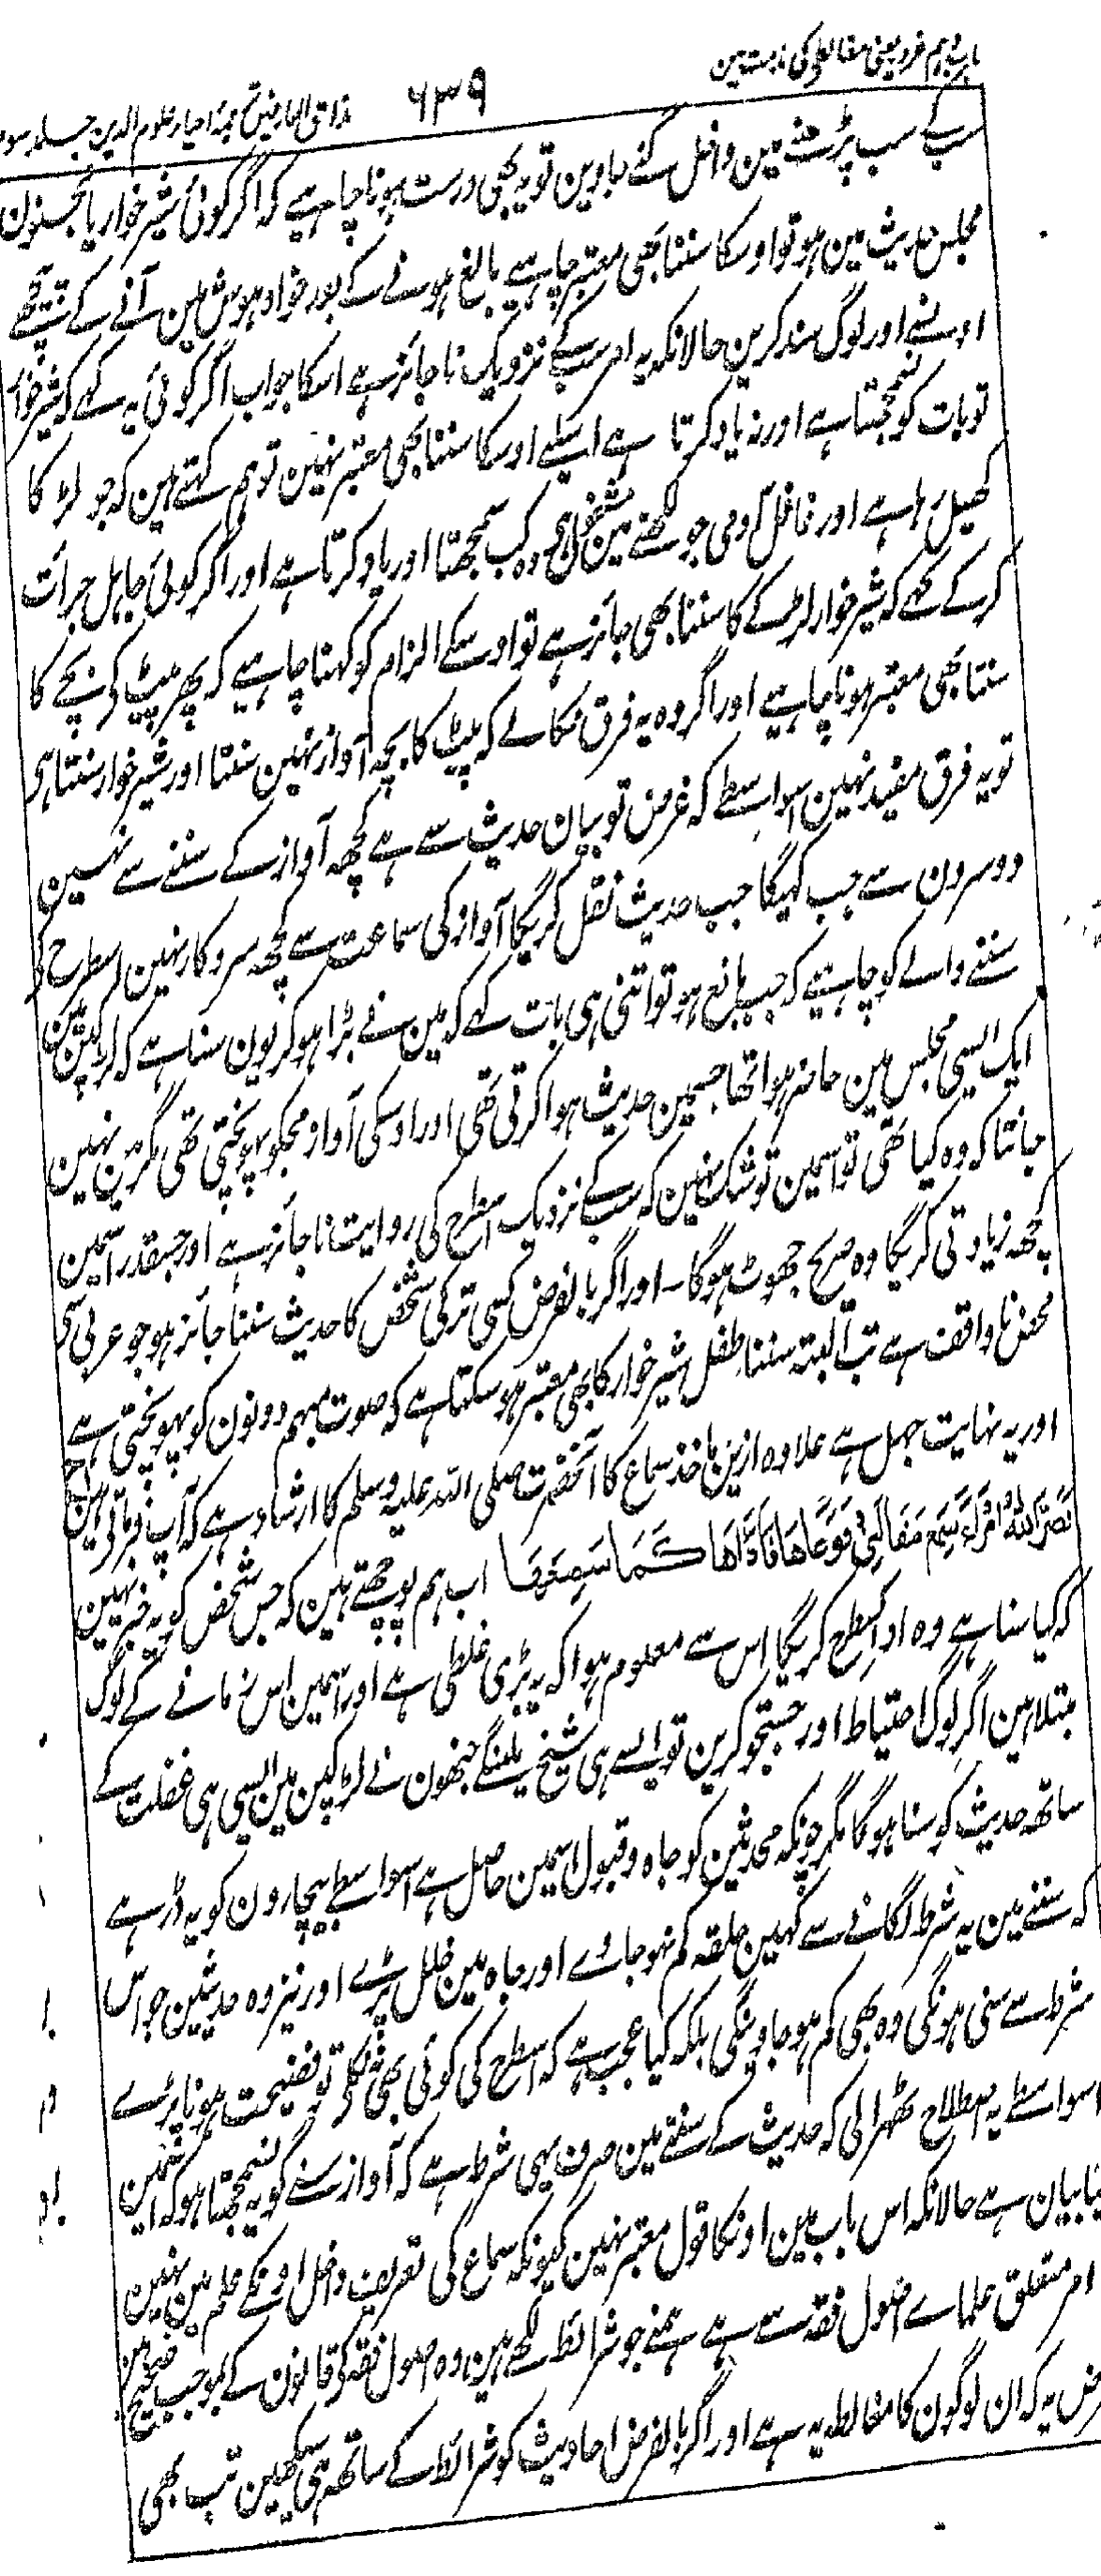 باب دہم غرور یعنی مغالطہ کی مذمت مین
۶۳۹
مذاق العارفین ترجمہ احیاء علوم الدین جلد سوم
سب پڑھنے مین داخل کئے جاوین تو یہ بھی درست ہونا چاہیے کہ اگر کوئی شیر خوار یا مجنون
مجلس حدیث مین ہو تو اوسکا سننا بھی معتبر چاہیے بالغ ہونے کے بعد خواہ ہوش مین آنے کے پیچھے
اوسنے اور لوگ سند کرین حالانکہ یہ امر سبکے نزدیک ناجائز ہے اسکا جواب اگر کوئی یہ کہے کہ شیر خوار
نہ تو بات کو سمجھتا ہے اور نہ یاد کرتا ہے اسلیے اوسکا سننا بھی معتبر نہین تو ہم کہتے ہین کہ جو لڑکا
کھیل رہا ہے اور غافل آدمی جو لکھنے مین مشغول ہی وہ کب سمجھتا اور یاد کرتا ہے اور اگر کوئی جاہل جرأت
کرکے کہے کہ شیر خوار لڑکے کا سننا بھی جائز ہے تو اوسکے الزام کو کہنا چاہیے کہ پھر پیٹ کے بچے کا
سننا بھی معتبر ہونا چاہیے اور اگر وہ یہ فرق نکالے کہ پیٹ کا بچہ آواز نہین سنتا اور شیر خوار سنتا ہی
تو یہ فرق مفید نہین اسواسطے کہ غرض تو بیان حدیث سے ہے کچھ آواز کے سننے سے نہین
دوسرون سے جب کہیگا جب حدیث نقل کریگا آواز کی سماعت سے کچھ سروکار نہین اسطرح کے
سننے والے کو چاہیے کہ جب بالغ ہو تو اتنی ہی بات کہے کہ مین نے بڑا ہوکر یون سنا ہے کہ لڑکپن مین
ایک ایسی مجلس مین حاضر ہوا تھا جسمین حدیث ہوا کرتی تھی اور اوسکی آواز مجکو پہونچتی تھی مگر مین نہین
جانتا کہ وہ کیا تھی تو اسمین تو شک نہین کہ سبکے نزدیک اسطرح کی روایت ناجائز ہے اور جسقدر اسمین
کچھ زیادتی کریگا وہ صریح جھوٹ ہوگا۔ اور اگر بالفرض کسی ترکی شخص کا حدیث سننا جائز ہو جو عربی سے
محض ناواقف ہے تب البتہ سننا طفل شیر خوار کا بھی معتبر ہو سکتا ہے کہ صوت مبہم دونون کو پہونچتی ہے
اور یہ نہایت جہل ہے علاوہ ازین ماخذ سماع کا آنحضرت صلی اللہ علیہ وسلم کا ارشاد ہے کہ آپ فرماتے ہین
نَضَّرَ اللّٰهُ امْرَأً سَمِعَ مَقَالَتِي فَوَعَاهَا فَأَدَّاهَا كَمَا سَمِعَهَا اب ہم پوچھتے ہین کہ جس شخص کو یہ خبر نہین
کہ کیا سنا ہے وہ ادا کسطرح کریگا اس سے معلوم ہوا کہ یہ بڑی غلطی ہے اور اسمین اس زمانے کے لوگ
مبتلا ہین اگر لوگ احتیاط اور جستجو کرین تو ایسے ہی شیخ ملینگے جنھون نے لڑکپن مین ایسی ہی غفلت کے
ساتھ حدیث کو سنا ہوگا مگر چونکہ محدثین کو جاہ و قبول اسمین حاصل ہے اسواسطے بیچارون کو یہ ڈر ہے
کہ سننے مین یہ شرط لگانے سے کہین حلقہ کم نہو جاوے اور جاہ مین خلل پڑے اور نیز وہ حدیثین جو اس
شرط سے سنی ہونگی وہ بھی کم ہو جاوینگی بلکہ کیا عجب ہے کہ اسطرح کی کوئی بھی نہ نکلے تو فضیحت ہونا پڑے
اسواسطے یہ اصطلاح ٹھہرا لی کہ حدیث کے سننے مین صرف یہی شرط ہے کہ آواز سنے گو یہ نسمجھتا ہو کہ اسمین
کیا بیان ہے حالانکہ اس باب مین اونکا قول معتبر نہین کیونکہ سماع کی تعریف داخل اونکے علم مین نہین
امر متعلق علماے اصول فقہ سے ہے ہمنے جو شرائط لکھے ہین وہ اصول فقہ کے قانون کے بموجب صحیح ہین
غرض یہ کہ ان لوگون کا مغالطہ یہ ہے اور اگر بالفرض احادیث کو شرائط کے ساتھ ہی سیکھین تب بھی